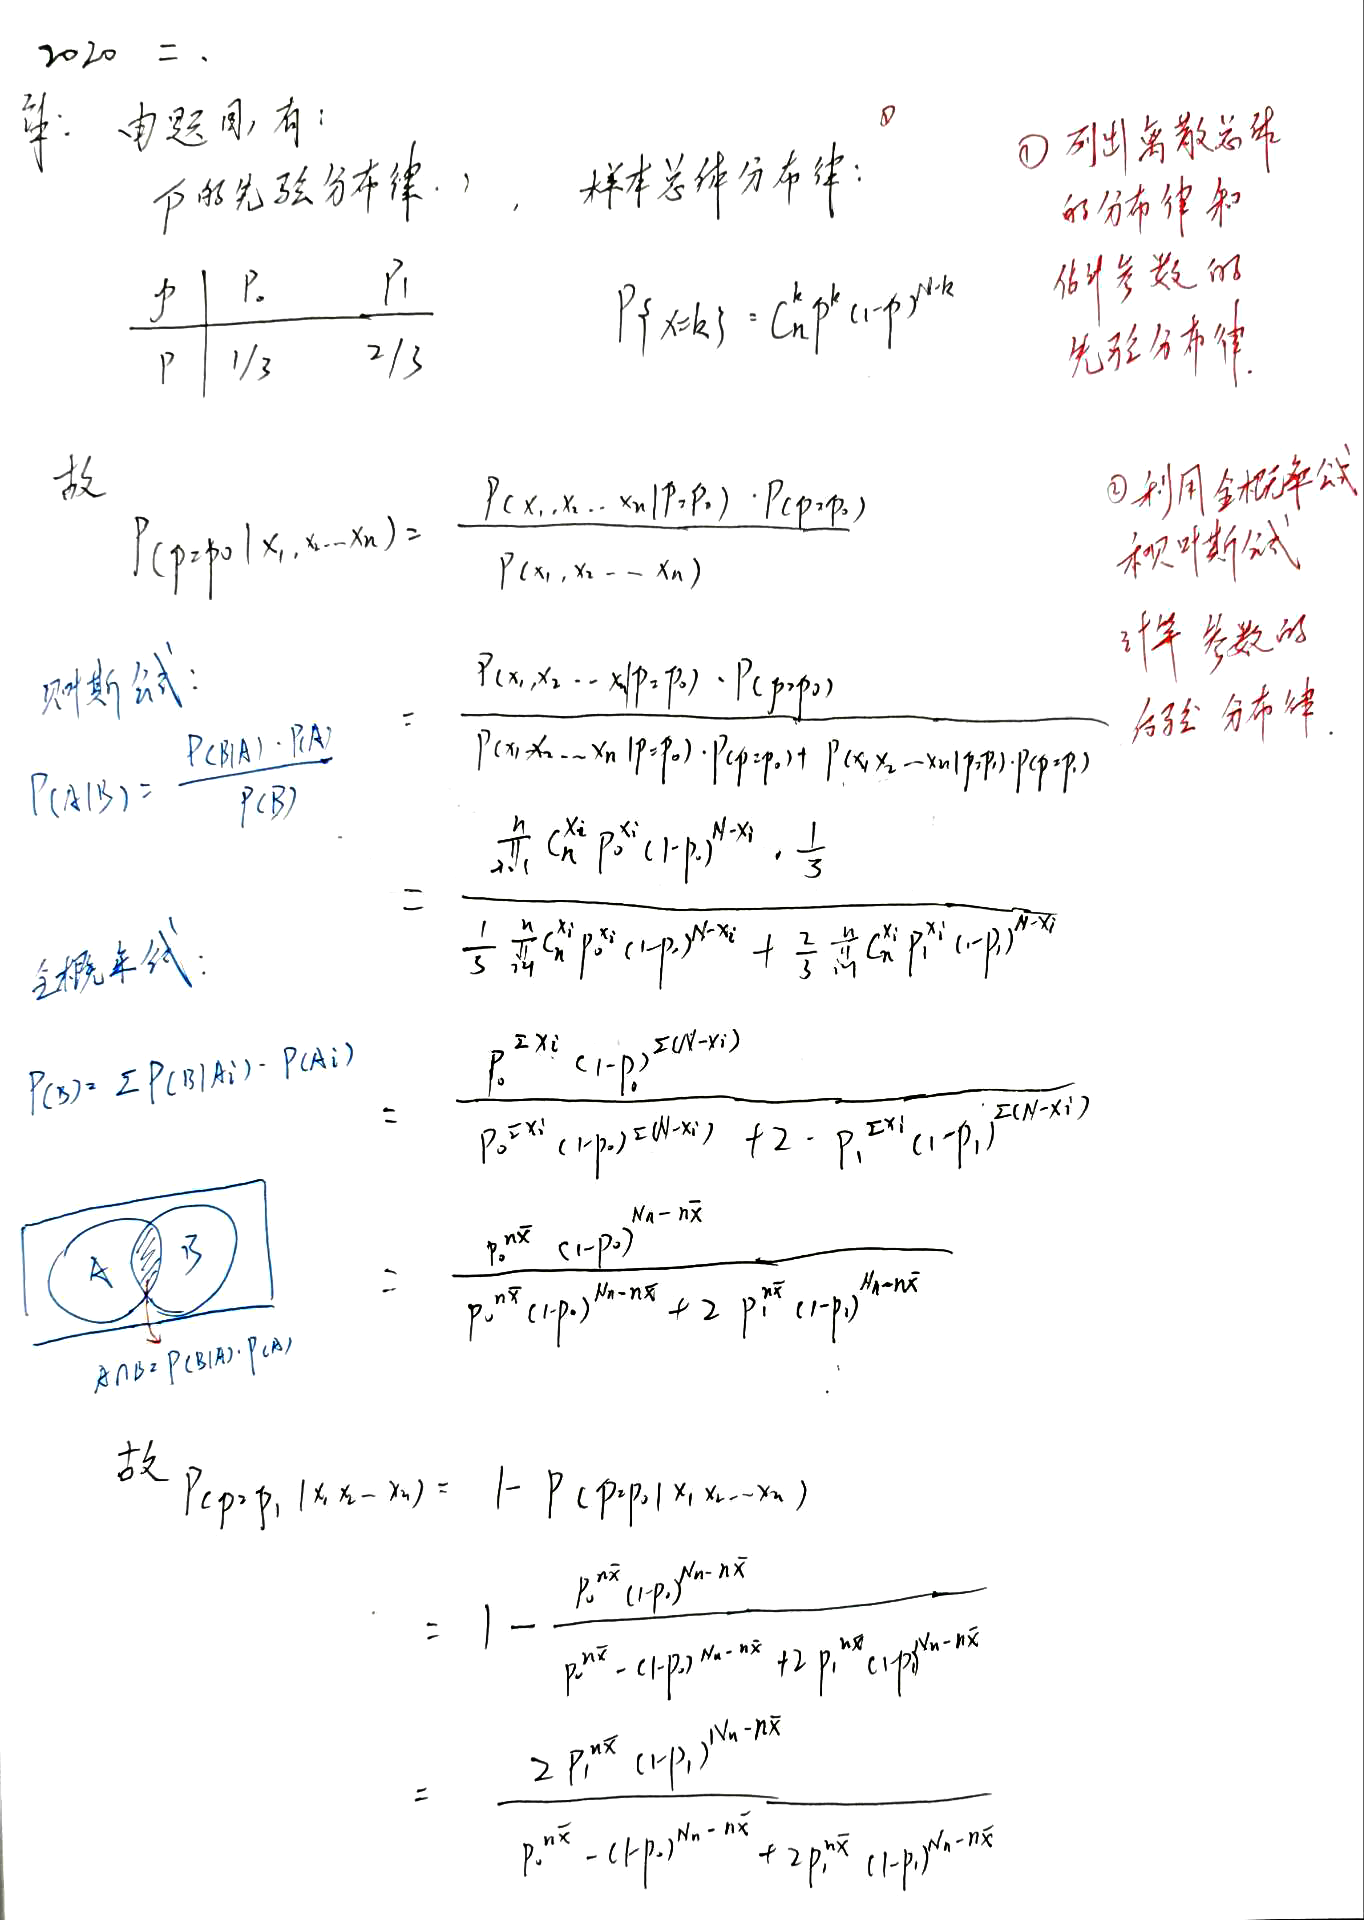 2020 二.
解: 由题目, 有:
p的先验分布律. , 样本总体分布律:
p | p₀ p₁
P | 1/3 2/3
P{X=k} = Cₙᵏ pᵏ (1-p)^{N-k}
① 列出离散总体
的分布律和
估计参数的
先验分布律.
故
P(p=p₀ | x₁, x₂ ... xₙ) = P(x₁, x₂ ... xₙ | p=p₀) · P(p=p₀) / P(x₁, x₂ ... xₙ)
② 利用全概率公式
和贝叶斯公式
计算 参数的
后验 分布律.
贝叶斯公式:
P(A|B) = P(B|A) · P(A) / P(B)
= P(x₁, x₂ ... xₙ | p=p₀) · P(p=p₀) / P(x₁ x₂ ... xₙ | p=p₀) · P(p=p₀) + P(x₁ x₂ ... xₙ | p=p₁) · P(p=p₁)
= ∏_{i=1}^{n} Cₙ^{xᵢ} p₀^{xᵢ} (1-p₀)^{N-xᵢ} · 1/3 / 1/3 ∏_{i=1}^{n} Cₙ^{xᵢ} p₀^{xᵢ} (1-p₀)^{N-xᵢ} + 2/3 ∏_{i=1}^{n} Cₙ^{xᵢ} p₁^{xᵢ} (1-p₁)^{N-xᵢ}
全概率公式:
P(B) = Σ P(B|Aᵢ) · P(Aᵢ)
= p₀^{Σxᵢ} (1-p₀)^{Σ(N-xᵢ)} / p₀^{Σxᵢ} (1-p₀)^{Σ(N-xᵢ)} + 2 · p₁^{Σxᵢ} (1-p₁)^{Σ(N-xᵢ)}
= p₀^{nx̄} (1-p₀)^{Nn-nx̄} / p₀^{nx̄} (1-p₀)^{Nn-nx̄} + 2 p₁^{nx̄} (1-p₁)^{Nn-nx̄}
A B
A∩B = P(B|A) · P(A)
故 P(p=p₁ | x₁ x₂ ... xₙ) = 1 - P(p=p₀ | x₁ x₂ ... xₙ)
= 1 - p₀^{nx̄} (1-p₀)^{Nn-nx̄} / p₀^{nx̄} - (1-p₀)^{Nn-nx̄} + 2 p₁^{nx̄} (1-p₁)^{Nn-nx̄}
= 2 p₁^{nx̄} (1-p₁)^{Nn-nx̄} / p₀^{nx̄} - (1-p₀)^{Nn-nx̄} + 2 p₁^{nx̄} (1-p₁)^{Nn-nx̄}